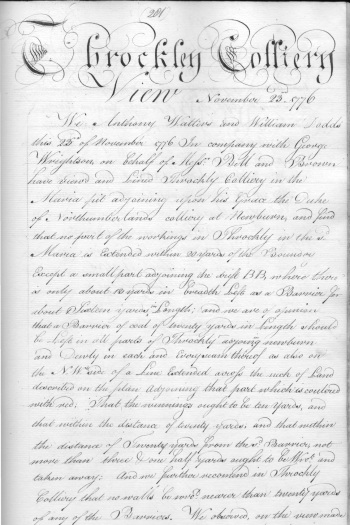 201
Throckley Colliery
View November 23. 1776
We, Anthony Watters and William Dodds
this 23d of November 1776 In company with George
Wrightson on behalf of Messrs Bell and Brown
have viewd and Lined Throckly Colliery in the
Maria pit adjoining upon his Grace the Duke
of Northumberlands colliery at Newburn, and find
that no part of the workings in Throckly in the sd
Maria is Extended within 20 yards of the Boundor
Except a small part adjoining the dyke BB, where there
is only about 10 yards in breadth Left as a Barrier for
about Sixteen yards in Length; and we are of opinion
that a Barrier of coal of twenty yards in Length should
be Left in all parts of Throckly adjoing newburn
and Dewly in each and Every seam thereof as also on
the N. Wt side of a Line Extended across the neck of Land
described on the plan adjoining that part which is coulered
with red; That the winnings ought to be ten Yards, and
that within the distance of twenty yards. and that within
the distance of Twenty yards from the sd Barrier, not
more than three & one half yards ought to be Wrot and
taken away; And we further recomend in Throckly
Colliery that no walls be wrot nearer than twenty yards
of any of the Barriers. We observed, on the view made